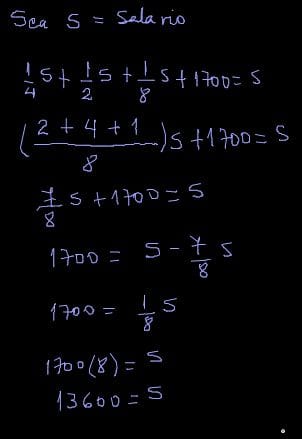 Sea S = Salario
1/4 S + 1/2 S + 1/8 S + 1700 = S
(2 + 4 + 1 / 8) S + 1700 = S
7/8 S + 1700 = S
1700 = S - 7/8 S
1700 = 1/8 S
1700(8) = S
13600 = S